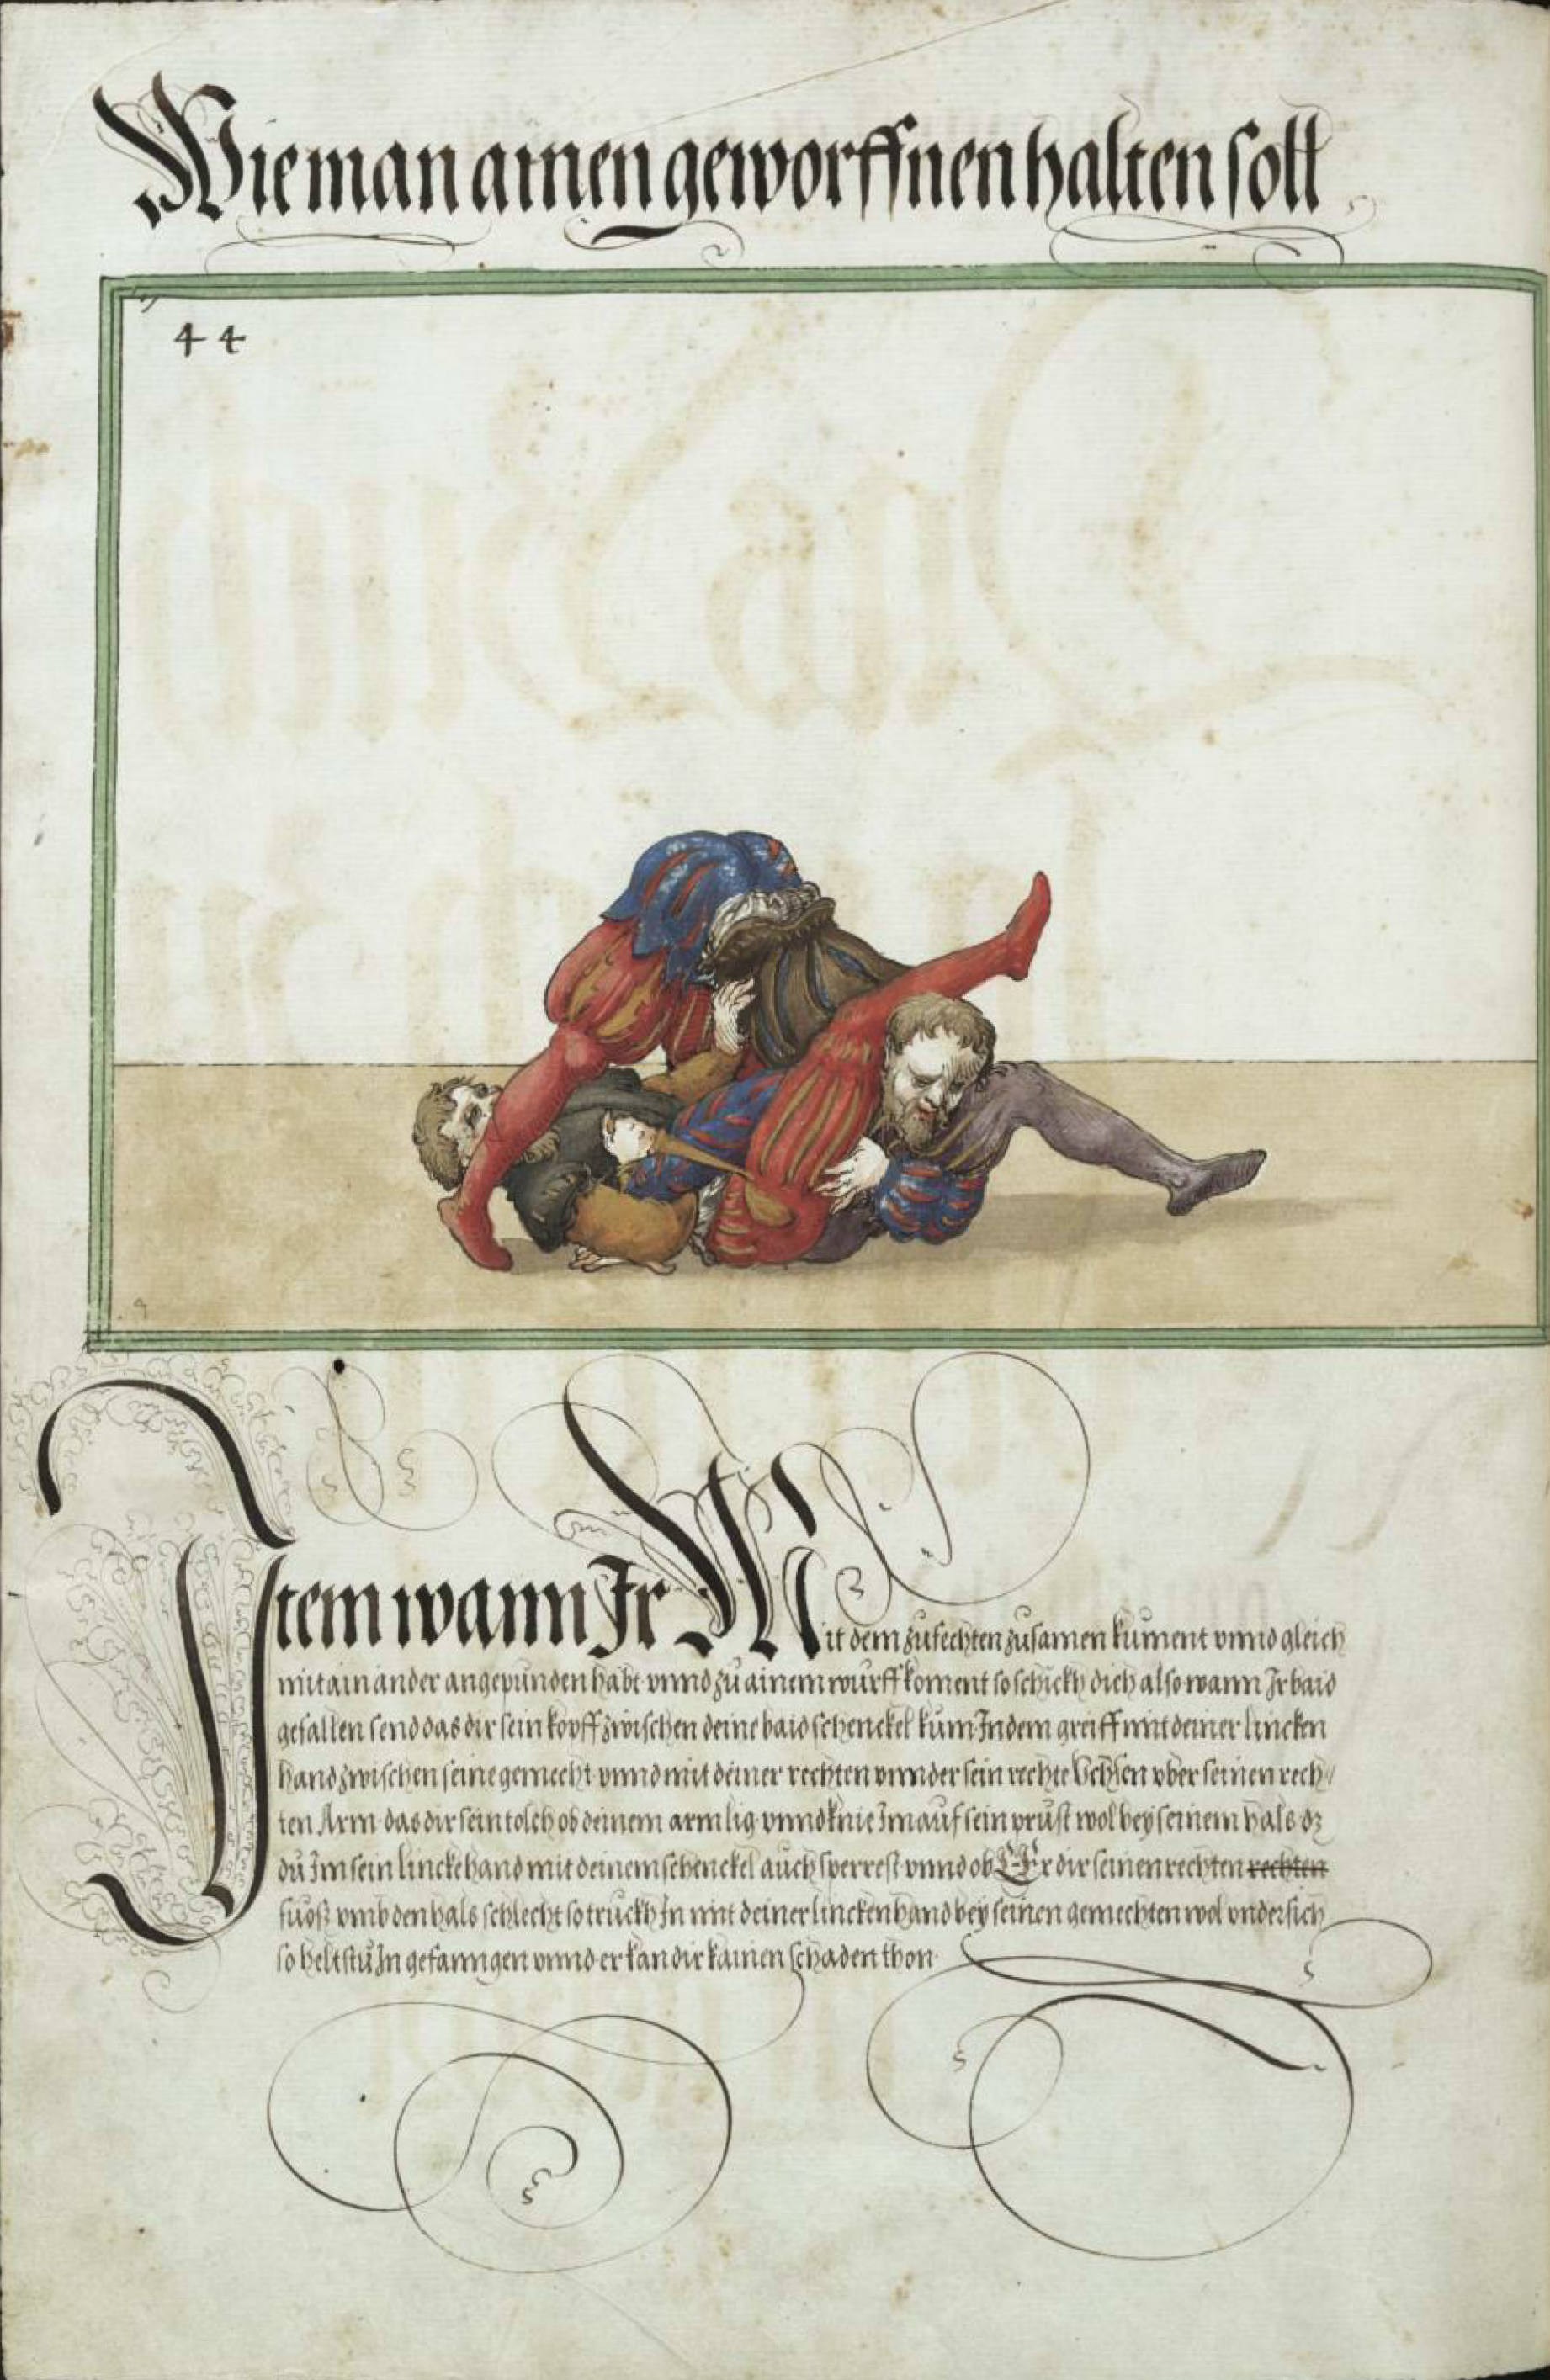 Wie man ainen geworffnen halten soll
44
Item wann Ir Mit dem zufechten zusamen kument vnnd gleich
mit ain ander angepunden habt vnnd zu ainem wurff koment so schickh dich also wann Ir baid
gefallen send das dir sein kopff zwischen deine baid schenckel kum Indem greiff mit deiner lincken
hand zwischen seine gemecht vnnd mit deiner rechten vnnder sein rechte Vchsen vber seinen rech//
ten Arm das dir sein tolch ob deinem arm lig vnnd knie Im auf sein prust wol bey seinem hals dz
du Im sein lincke hand mit deinem schenckel auch sperrest vnnd ob Er dir seinen rechten rechten
fuoß vmb den hals schlecht so truckh In mit deiner lincken hand bey seinen gemechten wol vndersich
so heltstu In gefanngen vnnd er kan dir kainen schaden thon